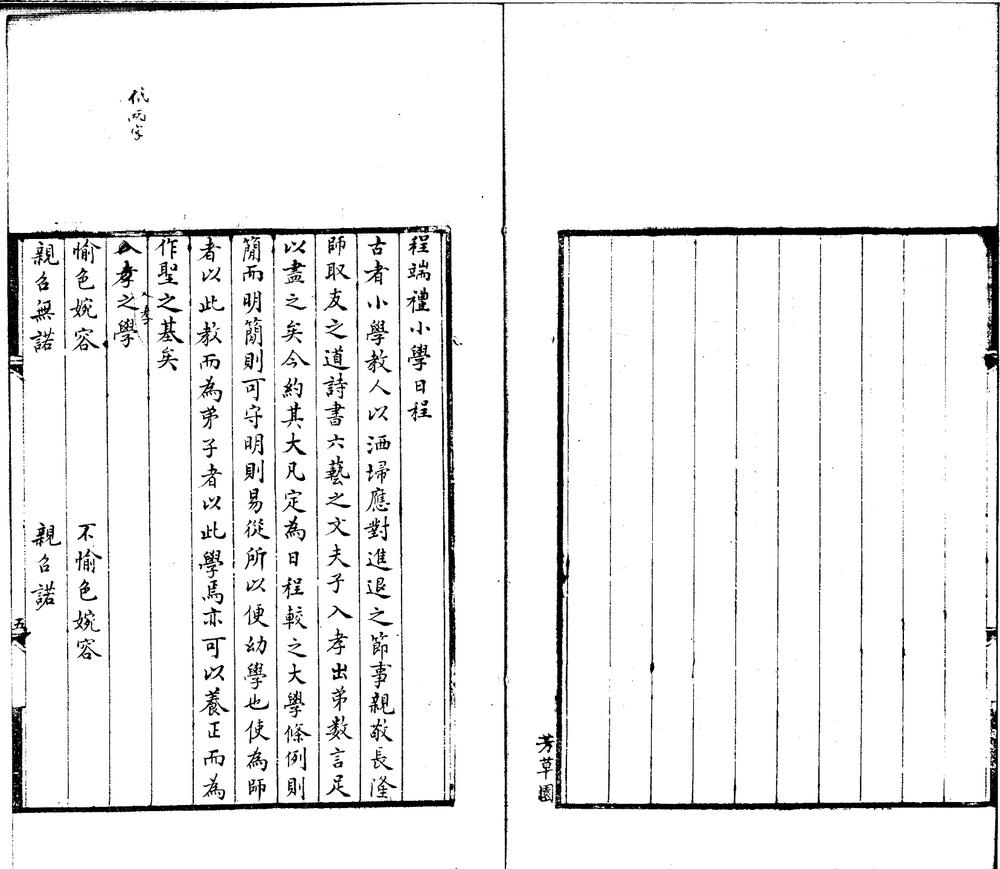 芳草園
低兩字
程端禮小學日程
古者小學教人以洒埽應對進退之節事親敬長隆
師取友之道詩書六藝之文夫子入孝出弟數言足
以盡之矣今約其大凡定為日程較之大學條例則
簡而明簡則可守明則易從所以便幼學也使為師
者以此教而為弟子者以此學焉亦可以養正而為
作聖之基矣
入孝
入孝之學
愉色婉容 不愉色婉容
親召無諾 親召諾
五